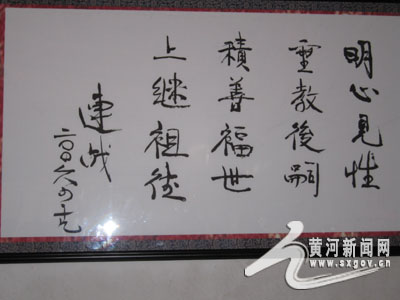 明心見性
重教後嗣
積善福世
上继祖德
連战
黄河新闻网
www.sxgov.cn